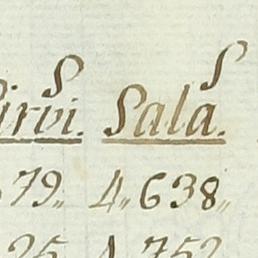 S S
irvi. Sala.
79,, 4,,638,,
25 4 752